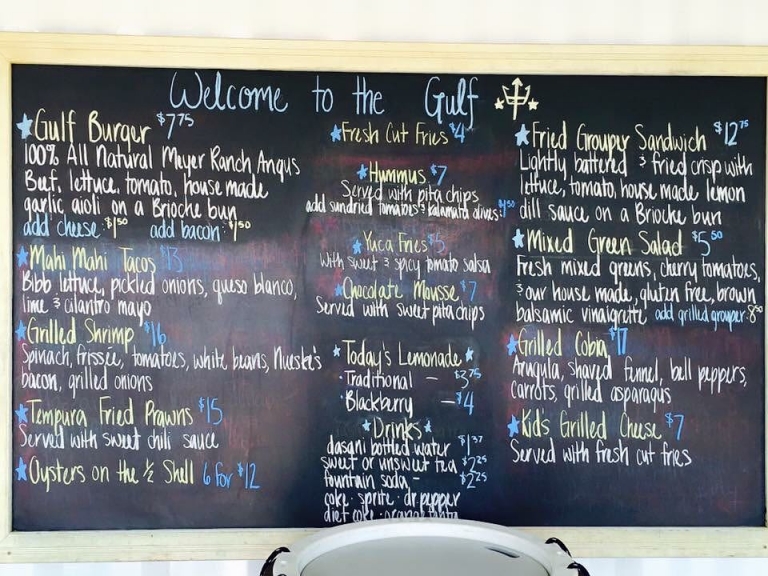 Welcome to the Gulf
Gulf Burger $7.75
100% All Natural Meyer Ranch Angus
Beef, lettuce, tomato, house made
garlic aioli on a Brioche bun
add cheese $1.50 add bacon $1.50
Mahi Mahi Tacos $13
Bibb lettuce, pickled onions, queso blanco,
lime & cilantro mayo
Grilled Shrimp $16
Spinach, frissée, tomatoes, white beans, Nueske's
bacon, grilled onions
Tempura Fried Prawns $15
Served with sweet chili sauce
Oysters on the 1/2 Shell 6 for $12
Fresh Cut Fries $4
Hummus $7
Served with pita chips
add sundried tomatoes & kalamata olives: $1.50
Yuca Fries $5
with sweet & spicy tomato salsa
Chocolate Mousse $7
Served with sweet pita chips
Today's Lemonade
Traditional — $3.75
Blackberry — $4
Drinks
dasani bottled water $1.37
sweet or unsweet tea $2.25
fountain soda - $2.25
coke · sprite · dr. pepper
diet coke · orange fanta
Fried Grouper Sandwich $12.75
Lightly battered & fried crisp with
lettuce, tomato, house made lemon
dill sauce on a Brioche bun
Mixed Green Salad $5.50
Fresh mixed greens, cherry tomatoes,
& our house made, gluten free, brown
balsamic vinaigrette add grilled grouper 8.50
Grilled Cobia $17
Arugula, shaved funnel, bell peppers,
carrots, grilled asparagus
Kid's Grilled Cheese $7
Served with fresh cut fries